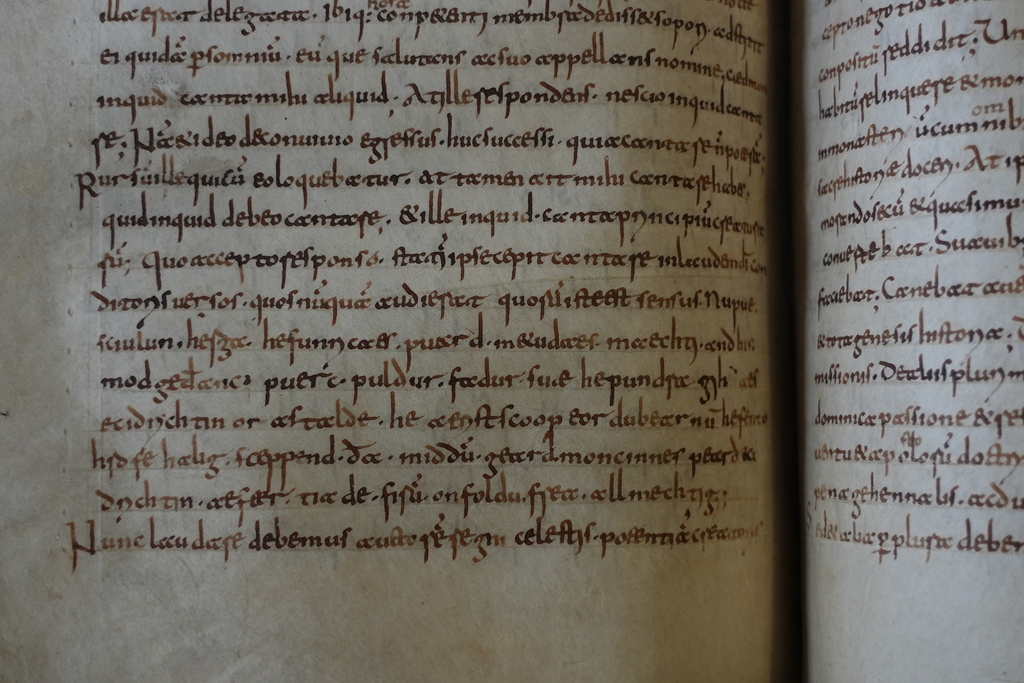 illa erat delegata. ibiq: conpetenti membra dedisset sopori. adstitit
ei quidā ꝑ somniū. eū que salutans ac suo appellans nomine. caedmon
inquid canta mihi aliquid. At ille respondens. nescio inquid canta
re; Nā & ideo de conuiuio egressus. huc successi. quia cantare ñ poterā.
Rursū ille qui cū eo loquebatur. at tamen ait mihi cantare habes.
quid inquid debeo cantare. & ille inquid. canta principiū creatura
rū; Quo accepto responso. statī ipse cepit cantare in laudem di con
ditoris uersos. quos nūquā audierat quorū iste est sensus. Nu pue
sciulun. herga. hefunricaes. puard. metudaes. maechti. and his
mod gedanc. puerc. puldur. fadur. sue he pundra gihuaes
eci drychtin or astalde. he aerist scoop eor du bearnū hefen to
hrofe halig. sceppend. da. middū. geard moncinnes peard eci
drychtin. aefter. tia de. firū. on foldu. frea. allmechtig;
Nunc laudare debemus auctorē regni celestis. potentiā creatoris
cepto negotio
conpositū reddidit; Un
habitū relinquere & mon
monasterii cum omnib
sacrae historiae doceri. At i
morando secū & quasi mu
conuertebat. Suauib
faciebat; Canebat
& tota genesis historia.
missionis. De aliis plurim
dominica passione & re
uentu & apłorū doctri
penae gehennalis. ac du
ꝑplura de ber